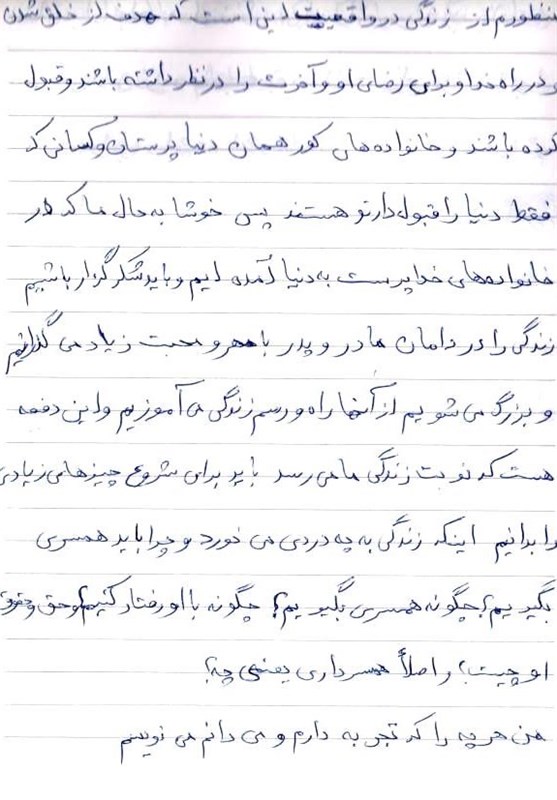 منظورم از زندگی در واقعیت این است که هدف از خلق شدن
و در راه خدا و برای رضای او و آخرت را در نظر داشته باشند و قبول
کرده باشند و خانواده های کور همان دنیا پرستان و کسانی که
فقط دنیا را قبول دارند هستند پس خوشا به حال ما که در
خانواده های خدا پرست به دنیا آمده ایم و باید شکر گزار باشیم
زندگی را در دامان مادر و پدر با مهر و محبت زیاد می گذرانیم
و بزرگ می شویم از آنها راه و رسم زندگی می آموزیم و این دفعه
هست که نوبت زندگی ما می رسد باید برای شروع چیزهای زیادی
را بدانیم اینکه زندگی به چه دردی می خورد و چرا باید همسری
بگیریم؟ چگونه همسری بگیریم؟ چگونه با او رفتار کنیم؟ و حق و حقوق
او چیست؟ و اصلاً همسرداری یعنی چه؟
من هر چه را که تجربه دارم و می دانم می نویسم